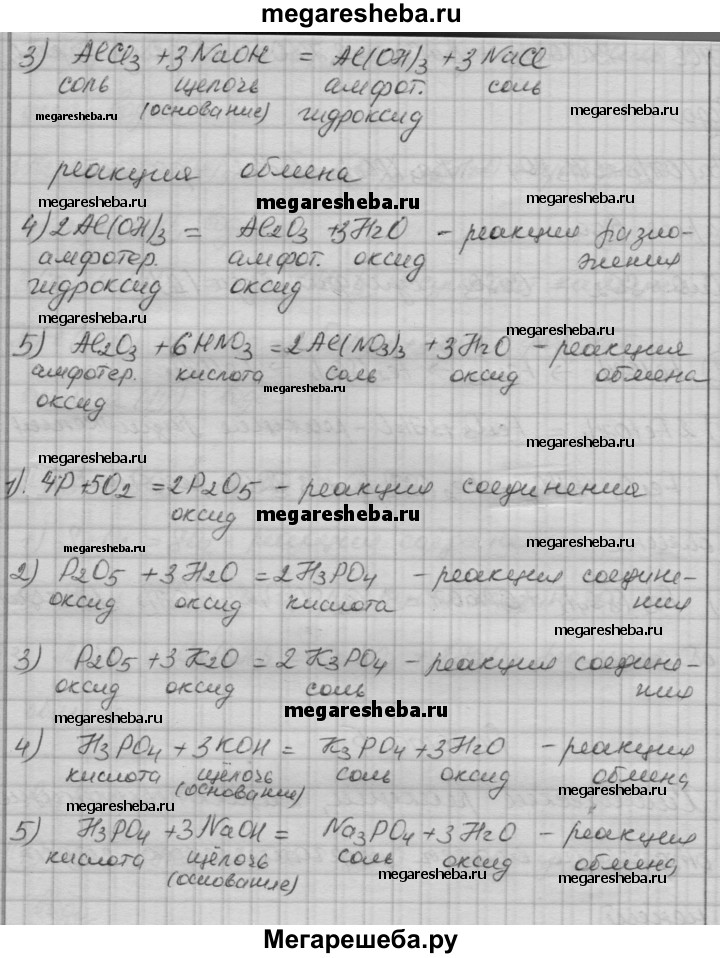 megaresheba.ru
3) AlCl₃ + 3NaOH = Al(OH)₃ + 3NaCl
соль щелочь амфот. соль
megaresheba.ru (основание) гидроксид megaresheba.ru
реакция обмена
megaresheba.ru megaresheba.ru megaresheba.ru
4) 2Al(OH)₃ = Al₂O₃ + 3H₂O - реакция разло-
амфотер. амфот. оксид жения
гидроксид оксид
megaresheba.ru megaresheba.ru
5) Al₂O₃ + 6HNO₃ = 2Al(NO₃)₃ + 3H₂O - реакция
амфотер. кислота соль оксид обмена
megaresheba.ru
оксид
megaresheba.ru megaresheba.ru
1). 4P + 5O₂ = 2P₂O₅ - реакция соединения
оксид megaresheba.ru
megaresheba.ru megaresheba.ru
2) P₂O₅ + 3H₂O = 2H₃PO₄ - реакция соедине-
оксид оксид кислота ния
megaresheba.ru
3) P₂O₅ + 3K₂O = 2K₃PO₄ - реакция соедине-
оксид оксид соль ния
megaresheba.ru megaresheba.ru
4) H₃PO₄ + 3KOH = K₃PO₄ + 3H₂O - реакция
кислота щёлочь соль оксид обмена
(основание)
megaresheba.ru megaresheba.ru megaresheba.ru
5) H₃PO₄ + 3NaOH = Na₃PO₄ + 3H₂O - реакция
кислота щёлочь соль оксид обмена
(основание) megaresheba.ru megaresheba.ru
Мегарешеба.ру